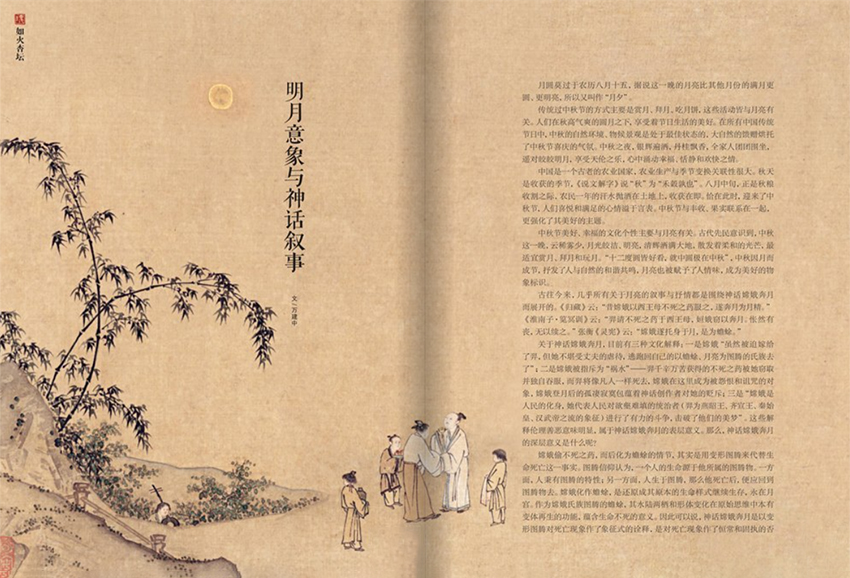 如火杏坛
明月意象与神话叙事
文｜万建中
月圆莫过于农历八月十五，据说这一晚的月亮比其他月份的满月更
圆、更明亮，所以又叫作“月夕”。
传统过中秋节的方式主要是赏月、拜月、吃月饼，这些活动皆与月亮有
关。人们在秋高气爽的圆月之下，享受着节日生活的美好。在所有中国传统
节日中，中秋的自然环境、物候景观是处于最佳状态的，大自然的馈赠烘托
了中秋节喜庆的气氛。中秋之夜，银辉遍洒，丹桂飘香，全家人团团围坐，
遥对皎皎明月，享受天伦之乐，心中涌动幸福、恬静和欢快之情。
中国是一个古老的农业国家，农业生产与季节变换关联性很大。秋天
是收获的季节，《说文解字》说“秋”为“禾谷孰也”。八月中旬，正是秋粮
收割之际，农民一年的汗水抛洒在土地上，收获在即。恰在此时，迎来了中
秋节，人们喜悦和满足的心情溢于言表。中秋节与丰收、果实联系在一起，
更强化了其美好的主题。
中秋节美好、幸福的文化个性主要与月亮有关。古代先民意识到，中秋
这一晚，云稀雾少，月光皎洁、明亮，清辉洒满大地，散发着柔和的光芒，最
适宜赏月、拜月和玩月。“十二度圆皆好看，就中圆极在中秋”，中秋因月而
成节，抒发了人与自然的和谐共鸣，月亮也被赋予了人情味，成为美好的物
象标识。
古往今来，几乎所有关于月亮的叙事与抒情都是围绕神话嫦娥奔月
而展开的。《归藏》云：“昔嫦娥以西王母不死之药服之，遂奔月为月精。”
《淮南子·览冥训》云：“羿请不死之药于西王母，姮娥窃以奔月，怅然有
丧，无以续之。”张衡《灵宪》云：“嫦娥遂托身于月，是为蟾蜍。”
关于神话嫦娥奔月，目前有三种文化解释：一是嫦娥“虽然被迫嫁给
了羿，但她不堪受丈夫的虐待，逃跑回自己的以蟾蜍、月亮为图腾的氏族去
了”；二是嫦娥被指斥为“祸水”——羿千辛万苦获得的不死之药被她窃取
并独自吞服，而羿将像凡人一样死去，嫦娥在这里成为被怨恨和诅咒的对
象，嫦娥登月后的孤凄寂寞包蕴着神话创作者对她的贬斥；三是“嫦娥是
人民的化身，她代表人民对欲壑难填的统治者（羿为燕昭王、齐宣王、秦始
皇、汉武帝之流的象征）进行了有力的斗争，击破了他们的美梦”。这些解
释伦理善恶意味明显，属于神话嫦娥奔月的表层意义。那么，神话嫦娥奔月
的深层意义是什么呢？
嫦娥偷不死之药，而后化为蟾蜍的情节，其实是用变形图腾来代替生
命死亡这一事实。图腾信仰认为，一个人的生命源于他所属的图腾物。一方
面，人兼有图腾的特性；另一方面，人生于图腾，那么他死亡后，便应回到
图腾物去。嫦娥化作蟾蜍，是还原成其原本的生命样式继续生存，永在月
宫。作为嫦娥氏族图腾的蟾蜍，其水陆两栖和形体变化在原始思维中本有
变体再生的功能，蕴含生命不死的意义。因此可以说，神话嫦娥奔月是以变
形图腾对死亡现象作了象征式的诠释，是对死亡现象作了恒常和固执的否